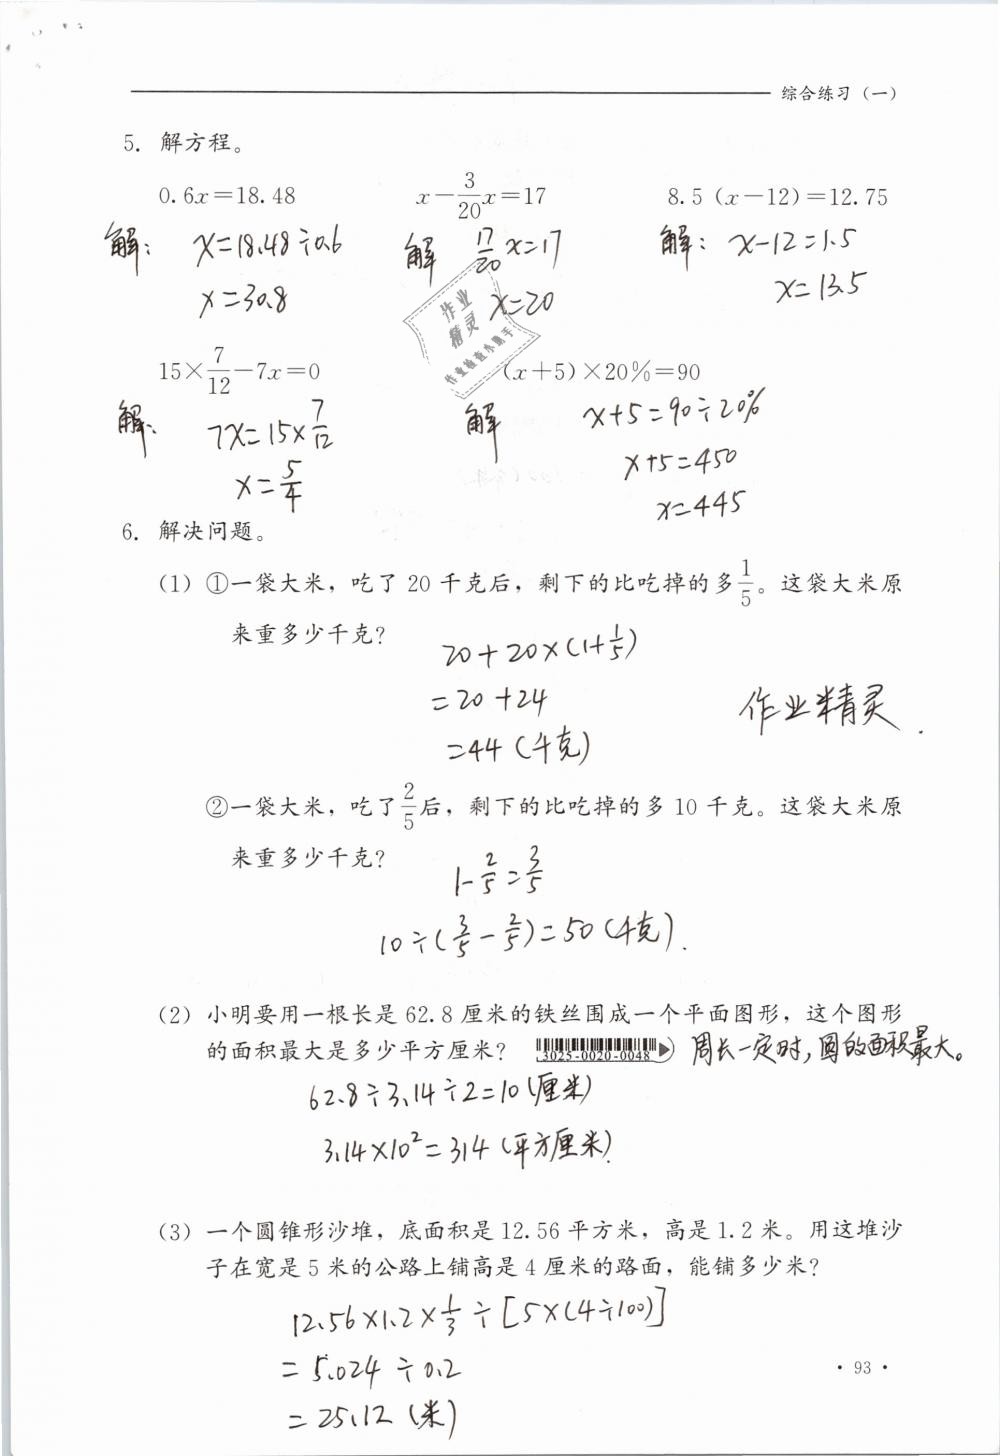 综合练习(一)
5. 解方程。
0.6x=18.48 x-3/20x=17 8.5(x-12)=12.75
解: x=18.48÷0.6 解 17/20x=17 解: x-12=1.5
x=30.8 x=20 x=13.5
作业
精灵
作业检查小助手
15×7/12-7x=0 (x+5)×20%=90
解: 7x=15×7/12 解 x+5=90÷20%
x=5/4 x+5=450
x=445
6. 解决问题。
(1) ①一袋大米，吃了20千克后，剩下的比吃掉的多1/5。这袋大米原
来重多少千克?
20+20×(1+1/5)
=20+24
作业精灵
=44(千克)
②一袋大米，吃了2/5后，剩下的比吃掉的多10千克。这袋大米原
来重多少千克?
1-2/5=3/5
10÷(3/5-2/5)=50(千克).
(2) 小明要用一根长是62.8厘米的铁丝围成一个平面图形，这个图形
的面积最大是多少平方厘米? 3025-0020-0048 周长一定时,圆的面积最大。
62.8÷3.14÷2=10(厘米)
3.14×10²=314(平方厘米)
(3) 一个圆锥形沙堆，底面积是12.56平方米，高是1.2米。用这堆沙
子在宽是5米的公路上铺高是4厘米的路面，能铺多少米?
12.56×1.2×1/3÷[5×(4÷100)]
=5.024÷0.2
=25.12(米)
·93·